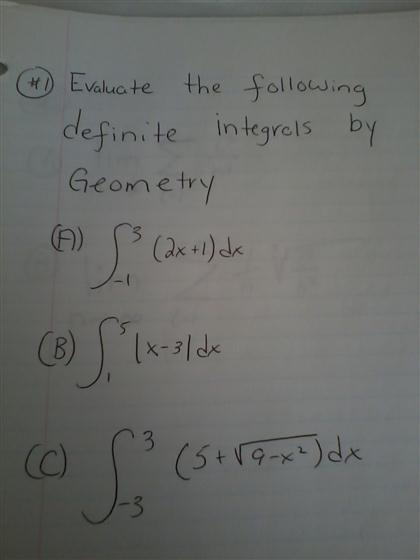 #1 Evaluate the following
definite integrals by
Geometry
(A) ∫₋₁³ (2x+1)dx
(B) ∫₁⁵ |x-3|dx
(C) ∫₋₃³ (5+√(9-x²))dx